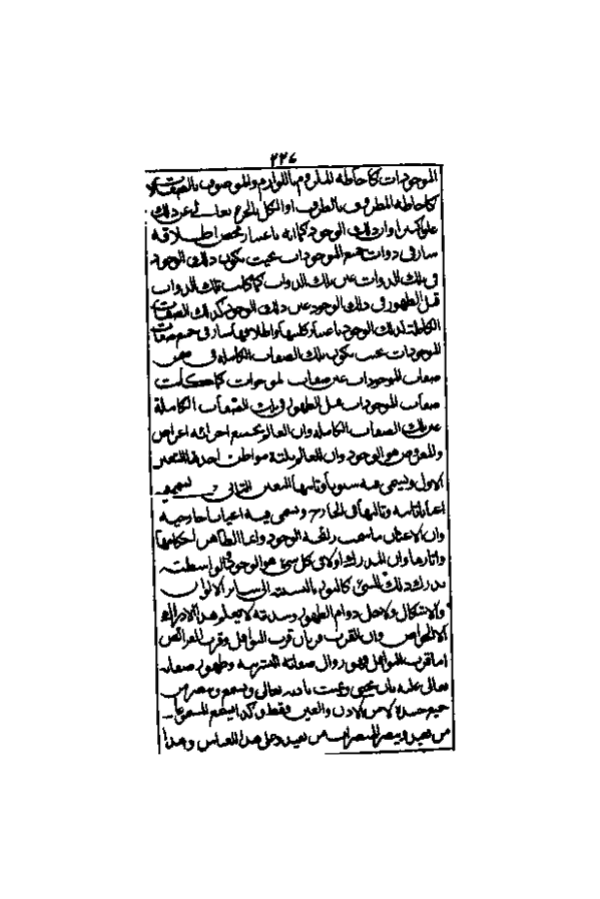 ٢٢٦
الموجودات كاحاطة الملزوم باللوازم والموصوف بالصفات لا
كاحاطة الظرف بالمظروف او الكل بالجزء تعالى عن ذلك
علوا كبيرا وان ذلك الوجود كما انه باعتبار محض اطلاقه
سار فى ذوات جميع الموجودات بحيث يكون ذلك الوجود
فى تلك الذوات عين تلك الذوات كما كانت تلك الذوات
قبل الظهور فى ذلك الوجود عين ذلك الوجود كذلك الصفات
الكاملة لذلك الوجود باعتبار كليتها واطلاقها سار فى جميع صفات
الموجودات بحيث يكون تلك الصفات الكاملة فى ضمن
صفات الموجودات عين صفات الموجودات كما كانت
صفات الموجودات قبل الظهور فى تلك الصفات الكاملة
عين تلك الصفات الكاملة وان العالم بجميع اجزائه اعراض
والمعروض هو الوجود وان للعالم ثلثة مواطن احدها التعين
الاول ويسمى فيه شئونا وثانيها التعين الثانى ويسمى فيه
اعيانا ثابتة وثالثها فى الخارج ويسمى فيه اعيانا خارجية
وان الاعيان ما شمت رائحة الوجود وانما الظاهر احكامها
واثارها وان المدرك اولا فى كل شئ هو الوجود فبواسطته
يدرك ذلك الشئ كالنور بالنسبة الى سائر الالوان
والاشكال ولاجل دوام الظهور وشدته لا يعلم هذا الادراك
الا الخواص وان القرب قربان قرب النوافل وقرب الفرائض
اما قرب النوافل فهو زوال صفاته البشرية وظهور صفاته
تعالى عليه بان يحيى ويميت باذنه تعالى ويسمع ويبصر من
جميع جسده لا من الاذن والعين فقط وكذا يسمع المسموعات
من بعيد ويبصر المبصرات من بعيد وعلى هذا القياس وهذا